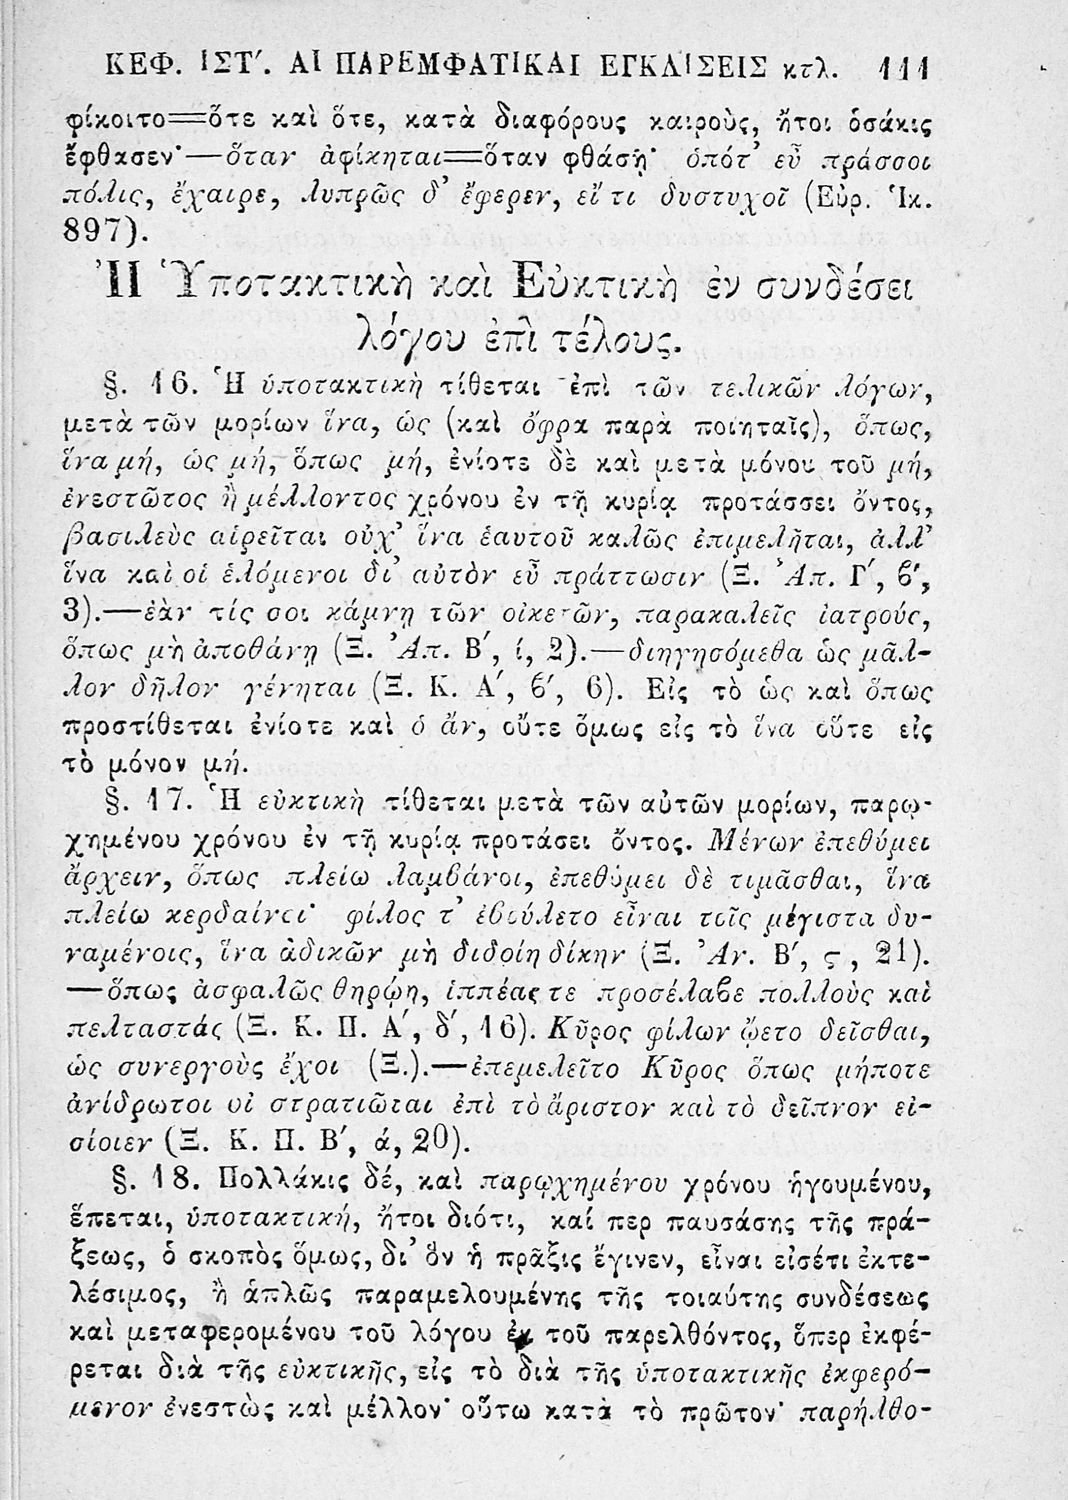 ΚΕΦ. ΙΣΤʹ. ΑΙ ΠΑΡΕΜΦΑΤΙΚΑΙ ΕΓΚΛΙΣΕΙΣ κτλ. 111
φίκοιτο=ὅτε καὶ ὅτε, κατὰ διαφόρους καιροὺς, ἤτοι ὁσάκις
ἔφθασεν·—ὅταν ἀφίκηται=ὅταν φθάσῃ· ὁπότ’ εὖ πράσσοι
πόλις, ἔχαιρε, λυπρῶς δ’ ἔφερεν, εἴ τι δυστυχοῖ (Εὐρ. Ἱκ.
897).
Ἡ Ὑποτακτικὴ καὶ Εὐκτικὴ ἐν συνδέσει
λόγου ἐπὶ τέλους.
§. 16. Ἡ ὑποτακτικὴ τίθεται ἐπὶ τῶν τελικῶν λόγων,
μετὰ τῶν μορίων ἵνα, ὡς (καὶ ὄφρα παρὰ ποιηταῖς), ὅπως,
ἵνα μή, ὡς μή, ὅπως μή, ἐνίοτε δὲ καὶ μετὰ μόνου τοῦ μή,
ἐνεστῶτος ἢ μέλλοντος χρόνου ἐν τῇ κυρίᾳ προτάσσει ὄντος,
βασιλεὺς αἱρεῖται οὐχ’ ἵνα ἑαυτοῦ καλῶς ἐπιμελῆται, ἀλλ’
ἵνα καὶ οἱ ἑλόμενοι δι’ αὐτὸν εὖ πράττωσιν (Ξ. Ἀπ. Γʹ, ϐʹ,
3).—ἐὰν τίς σοι κάμνῃ τῶν οἰκετῶν, παρακαλεῖς ἰατρούς,
ὅπως μὴ ἀποθάνῃ (Ξ. Ἀπ. Βʹ, ί, 2).—διηγησόμεθα ὡς μᾶλ-
λον δῆλον γένηται (Ξ. Κ. Αʹ, ϐʹ, 6). Εἰς τὸ ὡς καὶ ὅπως
προστίθεται ἐνίοτε καὶ ὁ ἄν, οὔτε ὅμως εἰς τὸ ἵνα οὔτε εἰς
τὸ μόνον μή.
§. 17. Ἡ εὐκτικὴ τίθεται μετὰ τῶν αὐτῶν μορίων, παρῳ-
χημένου χρόνου ἐν τῇ κυρίᾳ προτάσει ὄντος. Μένων ἐπεθύμει
ἄρχειν, ὅπως πλείω λαμϐάνοι, ἐπεθύμει δὲ τιμᾶσθαι, ἵνα
πλείω κερδαίνοι· φίλος τ’ ἐβούλετο εἶναι τοῖς μέγιστα δυ-
ναμένοις, ἵνα ἀδικῶν μὴ διδοίη δίκην (Ξ. Ἀν. Βʹ, ϛ, 21).
—ὅπως ἀσφαλῶς θηρῴη, ἱππέας τε προσέλαϐε πολλοὺς καὶ
πελταστάς (Ξ. Κ. Π. Αʹ, δʹ, 16). Κῦρος φίλων ᾤετο δεῖσθαι,
ὡς συνεργοὺς ἔχοι (Ξ.).—ἐπεμελεῖτο Κῦρος ὅπως μήποτε
ἀνίδρωτοι οἱ στρατιῶται ἐπὶ τὸ ἄριστον καὶ τὸ δεῖπνον εἰ-
σίοιεν (Ξ. Κ. Π. Βʹ, ά, 20).
§. 18. Πολλάκις δέ, καὶ παρῳχημένου χρόνου ἡγουμένου,
ἕπεται, ὑποτακτική, ἤτοι διότι, καί περ παυσάσης τῆς πρά-
ξεως, ὁ σκοπὸς ὅμως, δι’ ὃν ἡ πρᾶξις ἔγινεν, εἶναι εἰσέτι ἐκτε-
λέσιμος, ἢ ἁπλῶς παραμελουμένης τῆς τοιαύτης συνδέσεως
καὶ μεταφερομένου τοῦ λόγου ἐκ τοῦ παρελθόντος, ὅπερ ἐκφέ-
ρεται διὰ τῆς εὐκτικῆς, εἰς τὸ διὰ τῆς ὑποτακτικῆς ἐκφερό-
μενον ἐνεστὼς καὶ μέλλον· οὕτω κατὰ τὸ πρῶτον· παρήλθο-